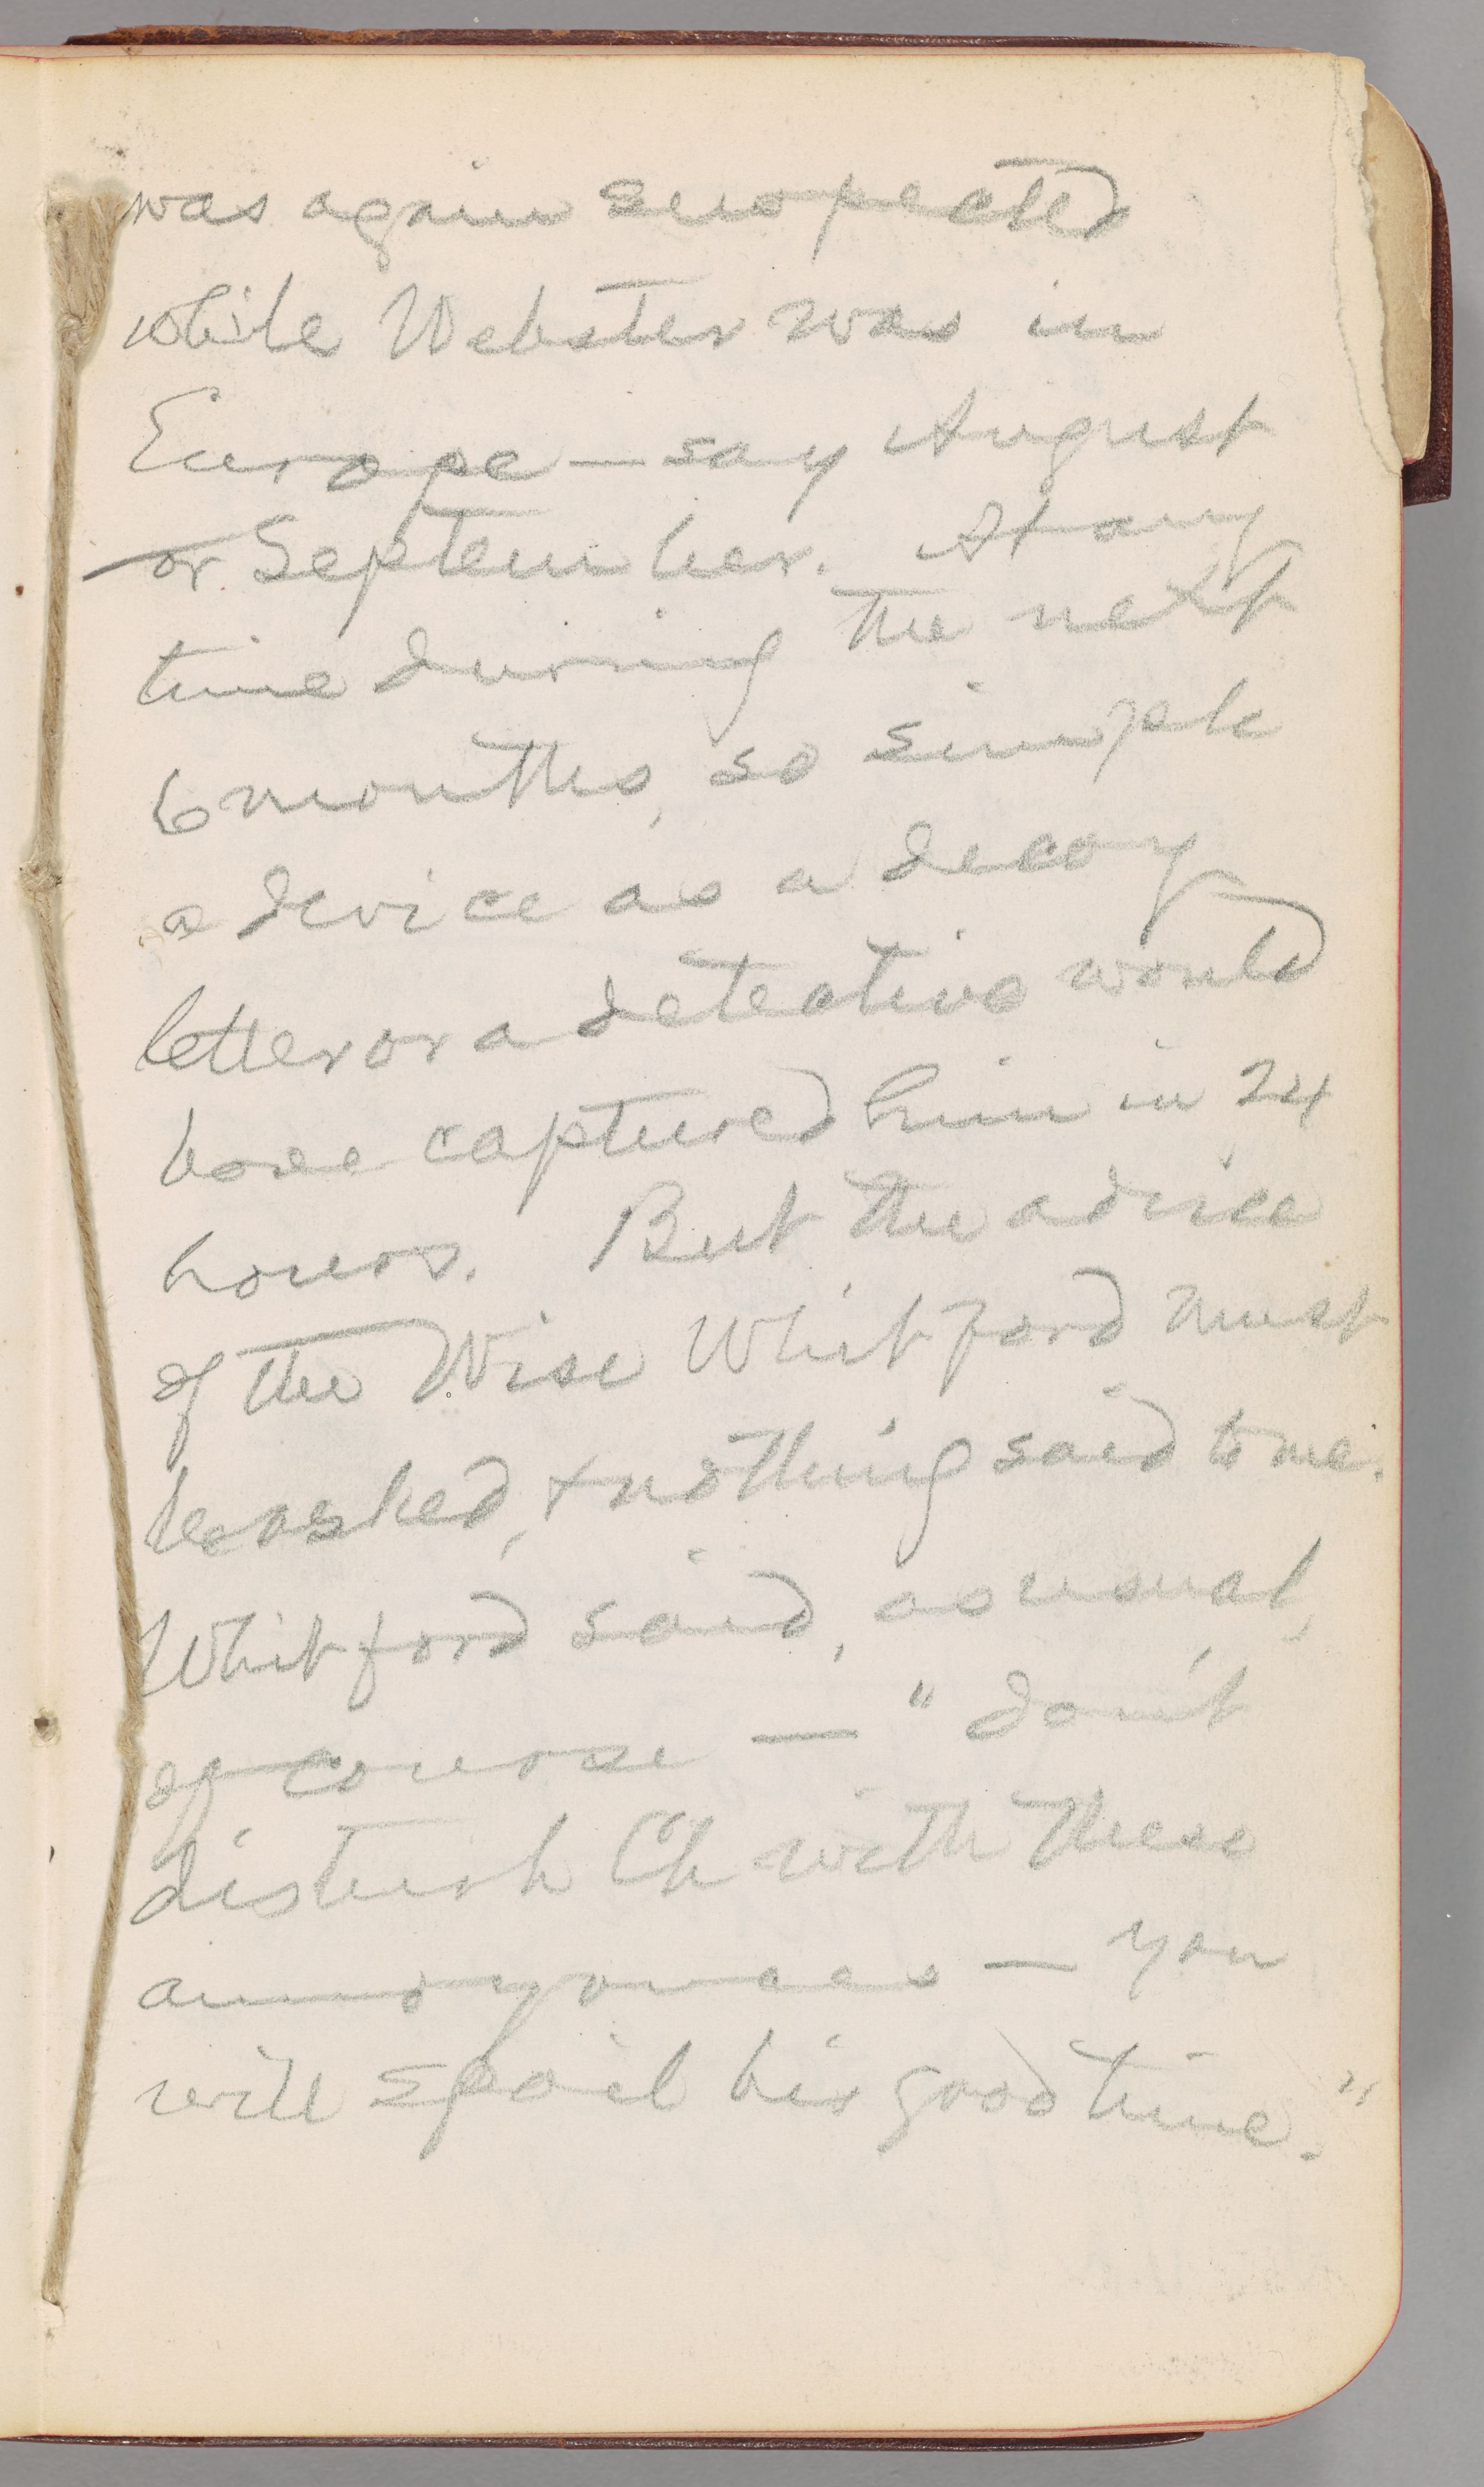 was again suspected
while Webster was in
Europe — say August
or September. At any
time during the next
6 months, so simple
a device as a decoy
letter or a detective would
have captured him in 24
hours. But the advice
of the Wise Whitford must
be asked, & nothing said to me.
Whitford said, as usual,
of course — "don't
disturb Ch with these
annoyances — you
will spoil his good time."